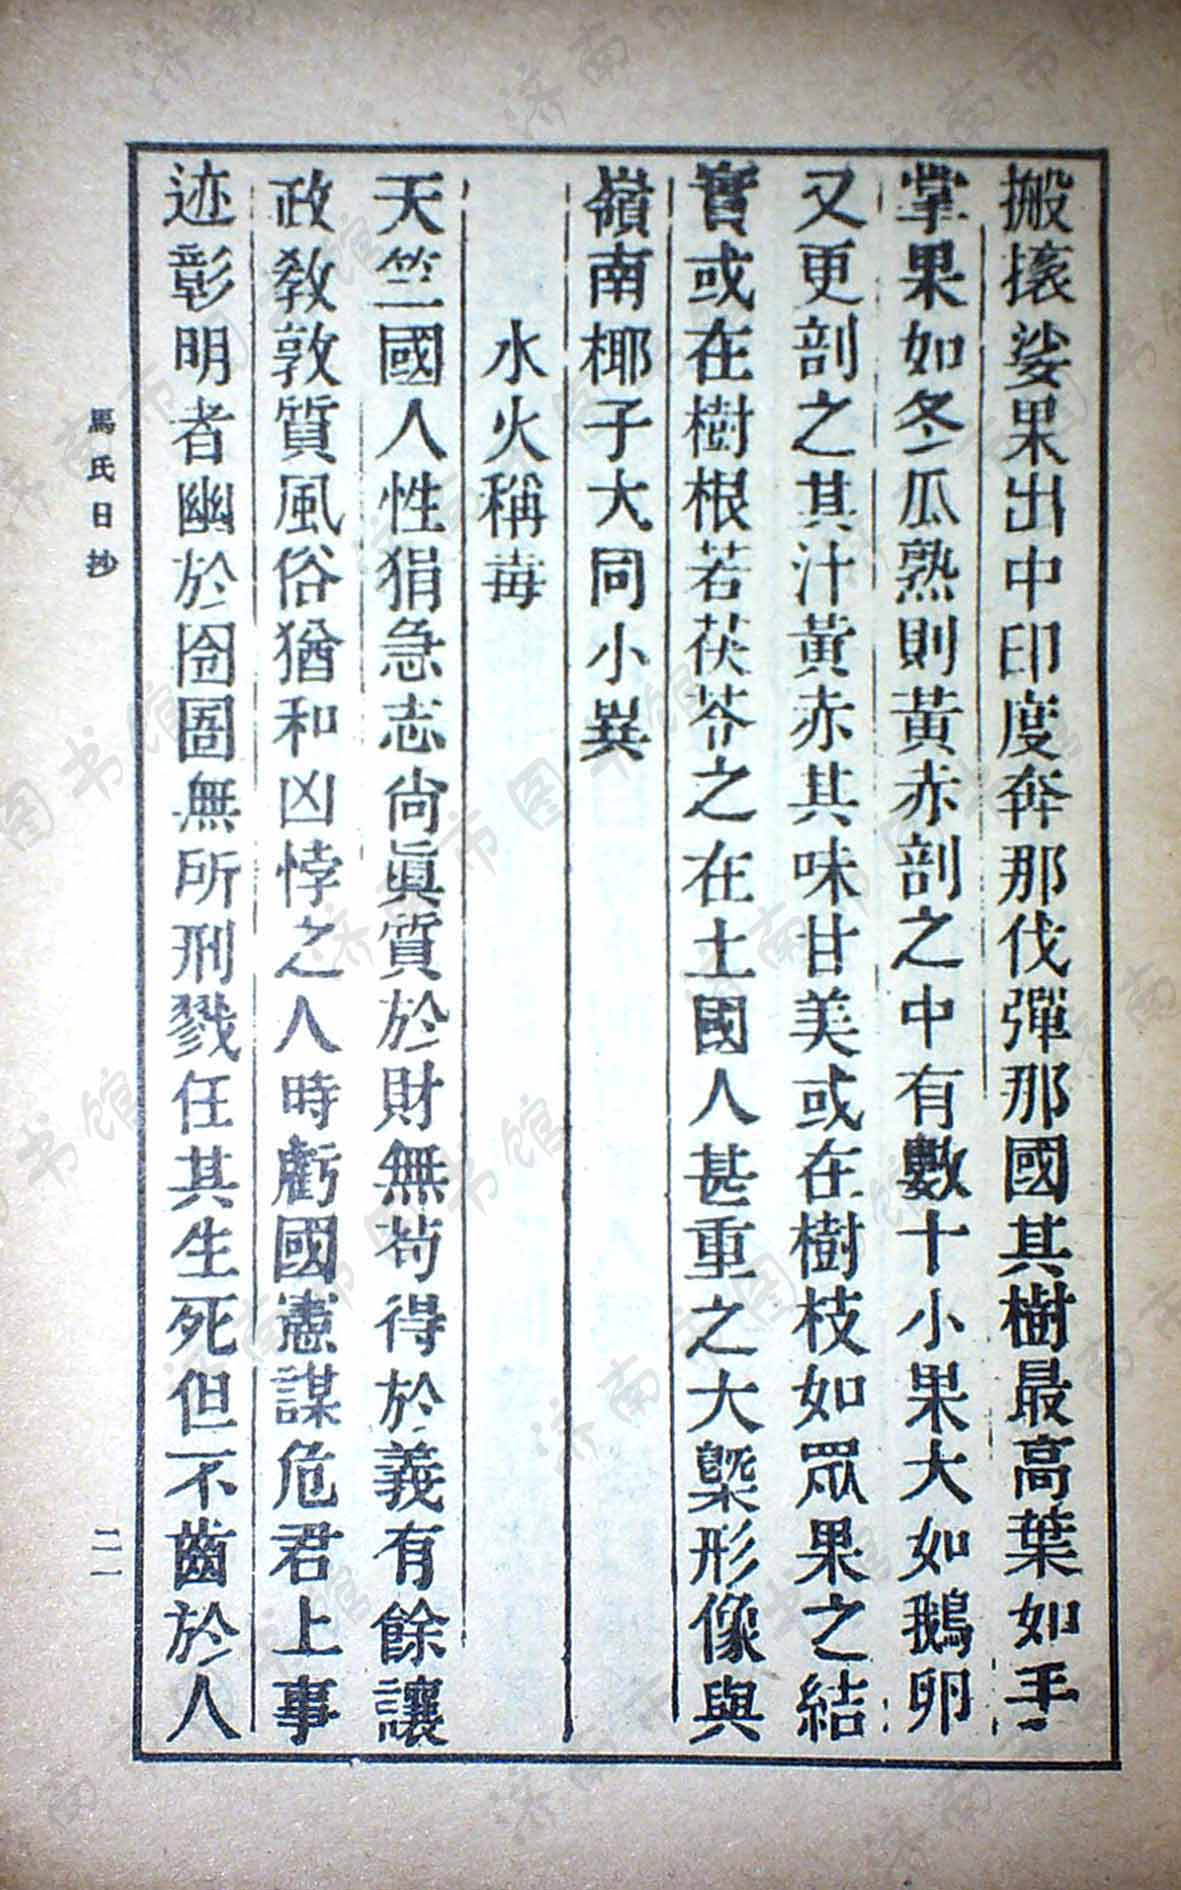 搬㨮娑果出中印度奔那伐彈那國其樹最高葉如手
掌果如冬瓜熟則黃赤剖之中有數十小果大如鵝卵
又更剖之其汁黃赤其味甘美或在樹枝如眾果之結
實或在樹根若茯苓之在土國人甚重之大槩形像與
嶺南椰子大同小異
水火稱毒
天竺國人性狷急志尙眞質於財無苟得於義有餘讓
政敎敦質風俗猶和凶悖之人時虧國憲謀危君上事
迹彰明者幽於囹圄無所刑戮任其生死但不齒於人
馬氏日抄
二一